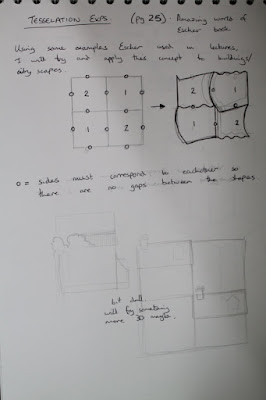 TESSELATION EXPS (pg 25) - Amazing world of
Escher book
Using some examples Escher used in lectures,
I will try and apply this concept to buildings/
city scapes.
2 1
1 2
2 1
1 2
o = sides must correspond to eachother so
there are no gaps between the shapes.
bit dull
will try something
more 3D maybe.